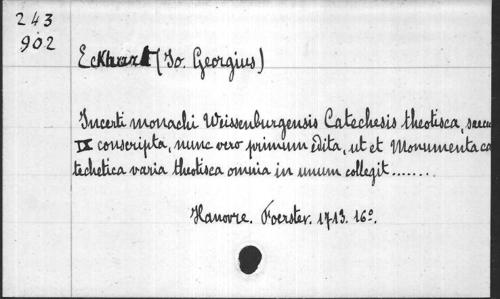 243
902
Eckhart (Jo. Georgius)
Incerti monachi Weissenburgensis Catechesis theotisca, saecu
IX conscripta, nunc vero primum edita, ut et Monumenta ca
techetica varia theotisca omnia in unum collegit.......
Hanovre. Foerster. 1713. 16º.